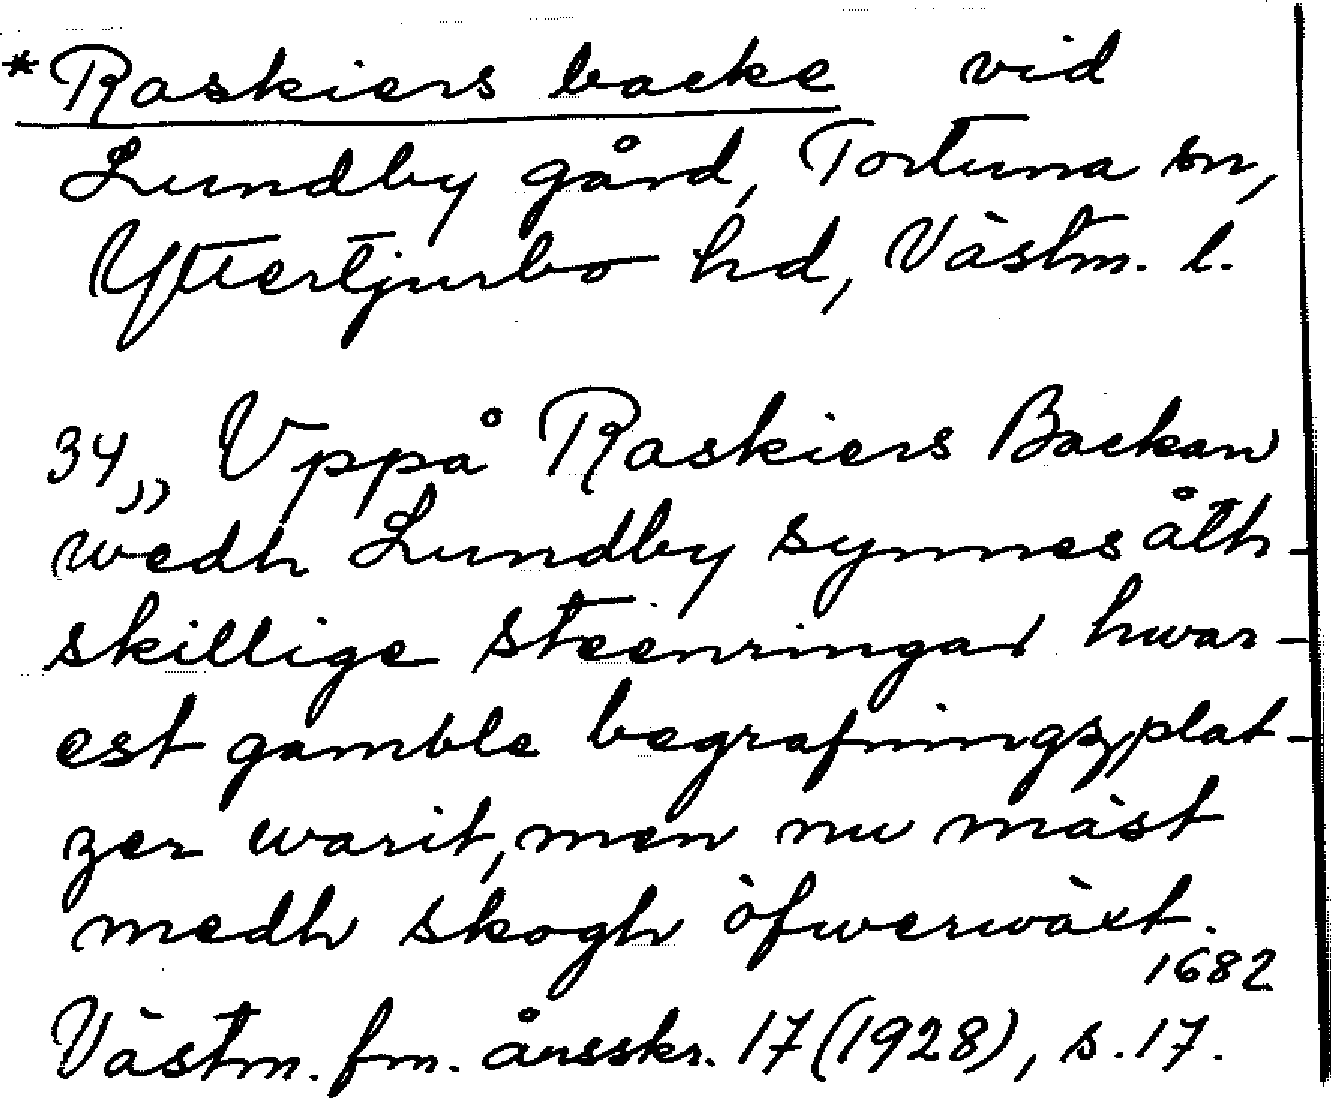 *Raskiers backe vid
Lundby gård, Tortuna sn,
Yttertjurbo hd, Västm. l.
34,, Vppå Raskiers Backan
wedh Lundby synnes åth-
skillige steenringar hwar-
est gamble begrafningzplat-
zer warit, men nu mäst
medh skogh öfwerwäxt.
1682
Västm. fm. årsskr. 17 (1928), s. 17.